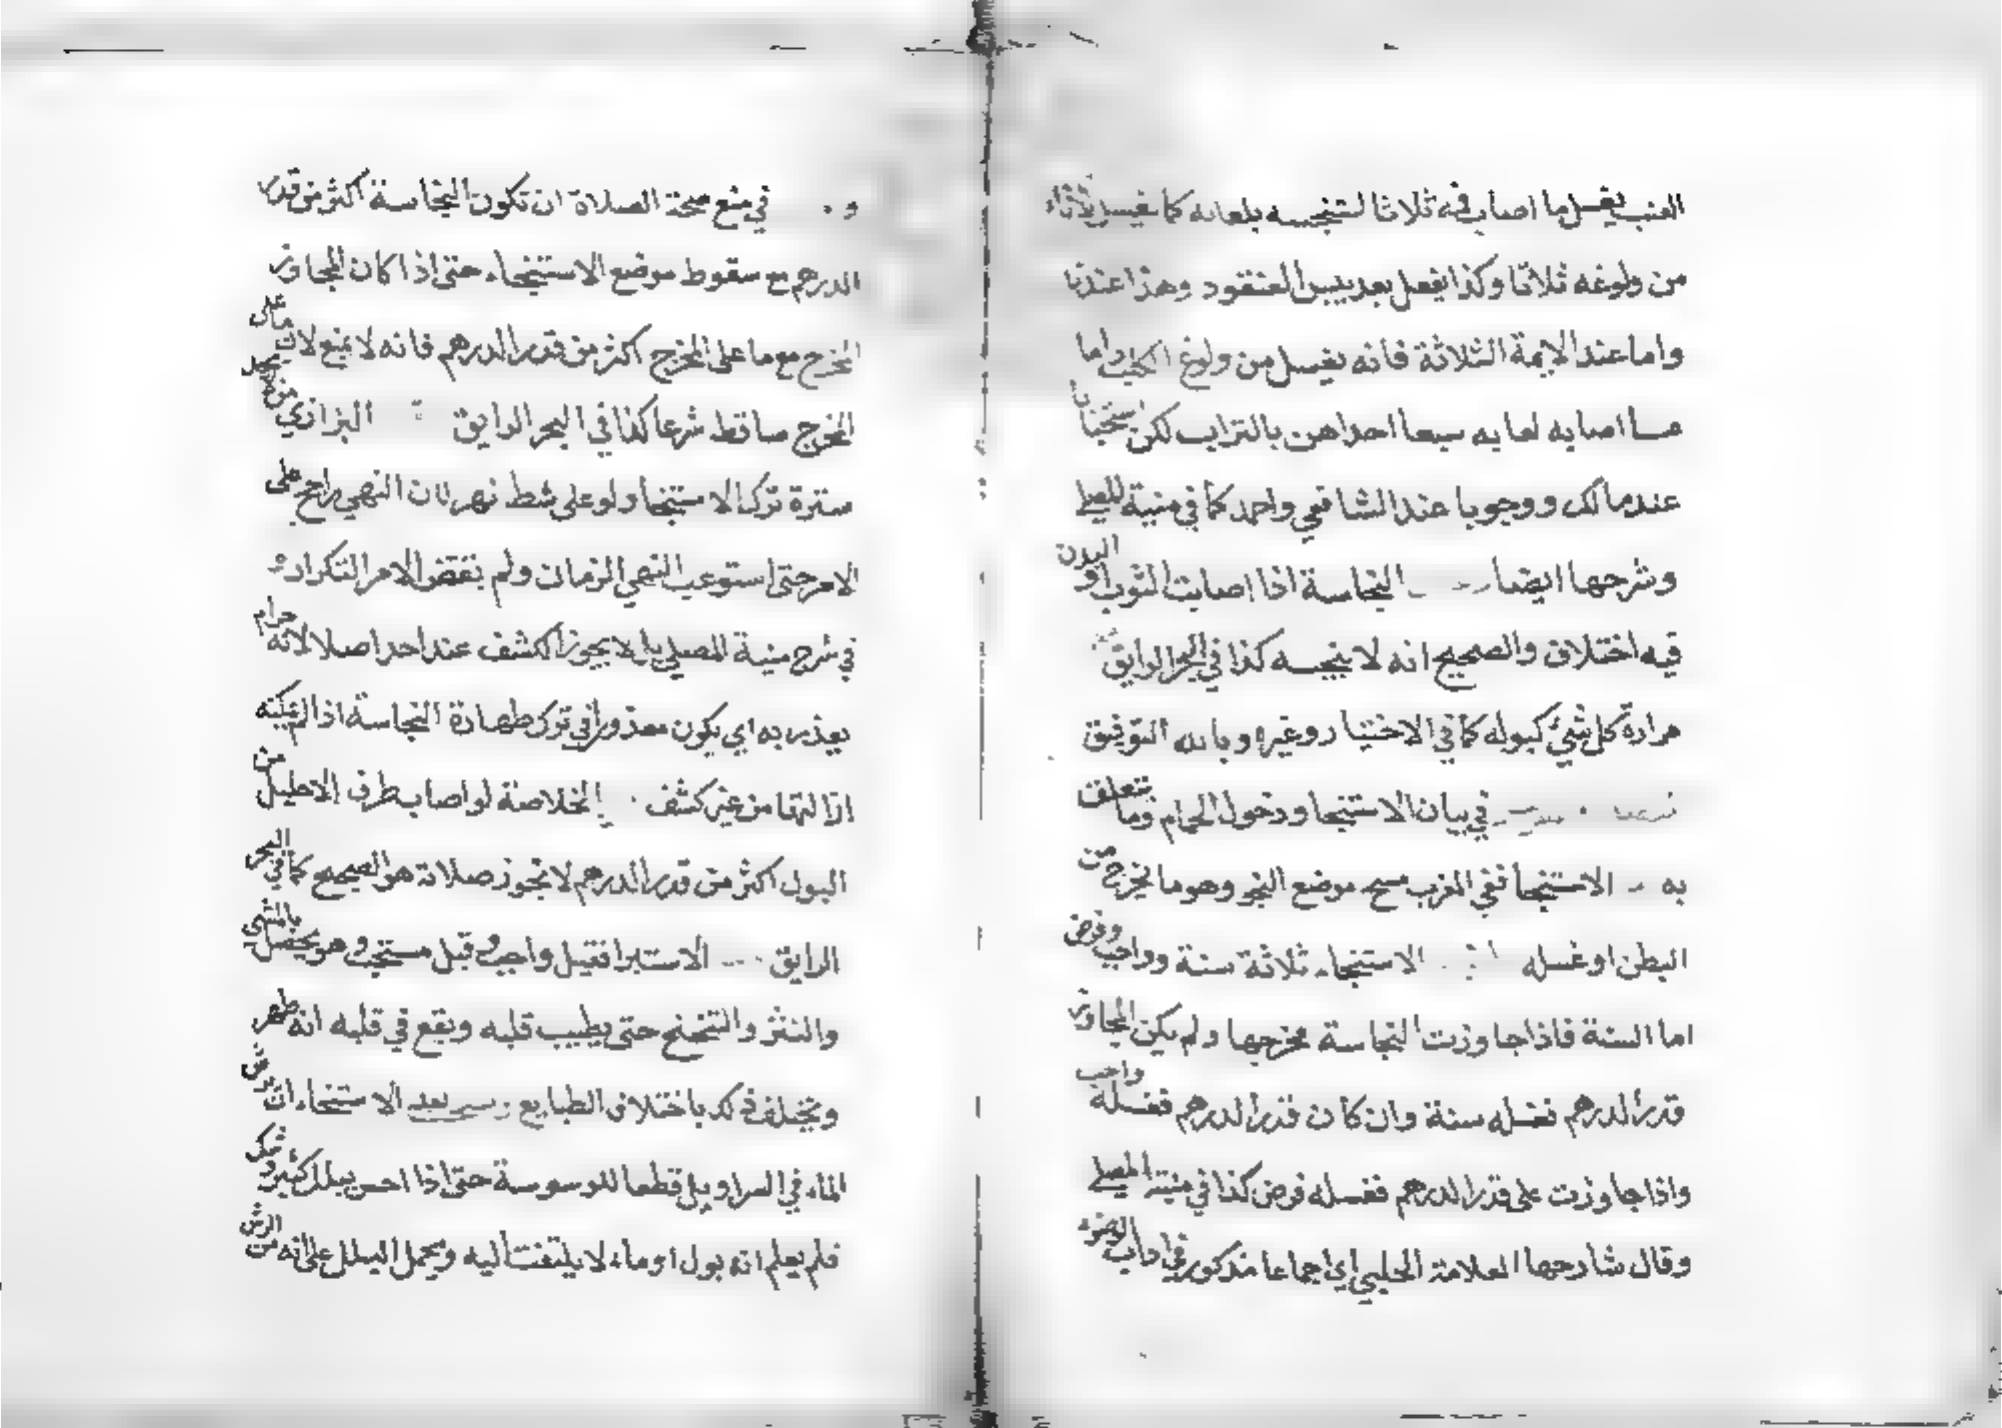 العنب يغسل ما اصاب فمه ثلاثا لتنجيسه بلعابه كما يغسل الاناء
من ولوغه ثلاثا وكذا يفعل بعد يبس العنقود وهذا عندنا
واما عند الايمة الثلاثة فانه يغسل من ولوغ الكلب واما
ما اصابه لعابه سبعا احداهن بالتراب لكن استحبابا
عند مالك ووجوبا عند الشافعي واحمد كما في منية المصلي
وشرحها ايضا النجاسة اذا اصابت الثوب او البدن
فيه اختلاف والصحيح انه لا ينجسه كذا في البحر الرايق
مرارة كل شيء كبوله كما في الاختيار وغيره وبالله التوفيق
في بيان الاستنجا ودخول الحمام وما يتعلق
به الاستنجا ففي المغرب مسح موضع النجو وهو ما يخرج من
البطن او غسله الاستنجاء ثلاثة سنة وواجب وفرض
اما السنة فاذا جاوزت النجاسة مخرجها ولم يكن المجاوز
قدر الدرهم فغسله سنة وان كان قدر الدرهم فغسله واجب
واذا جاوزت على قدر الدرهم فغسله فرض كذا في منية المصلي
وقال شارحها العلامة الحلبي اي اجماعا مذكور في اداب الوضوء
في منع صحة الصلاة ان تكون النجاسة اكثر من قدر
الدرهم مع سقوط موضع الاستنجاء حتى اذا كان المجاوز
المخرج مع ما على المخرج اكثر من قدر الدرهم فانه لا يمنع لان ما على
المخرج ساقط شرعا كذا في البحر الرايق البزازي من لم يجد
سترة ترك الاستنجا ولو على شط نهر لان النهي راجح على
الامر حتى استوعب النهي الزمان ولم يقتض الامر التكرار
في شرح منية المصلي بل لا يجوز الكشف عند احد اصلا لانه حرام
يعذر به اي يكون معذورا في ترك طهارة النجاسة اذا لم يمكنه
ازالتها من غير كشف الخلاصة لو اصاب طرف الاحليل من
البول اكثر من قدر الدرهم لا تجوز صلاته هو الصحيح كما في البحر
الرايق الاستبرا فقيل واجب وقيل مستحب وهو يحصل بالمشي
والنثر والتنحنح حتى يطيب قلبه ويقع في قلبه انه طهر
ويختلف ذلك باختلاف الطبايع بعد الاستنجاء ان
الماء في السراويل قطعا للوسوسة حتى اذا احس ببلل كثير وشك
فلم يعلم انه بول او ماء لا يلتفت اليه ويحمل البلل على انه من الرش